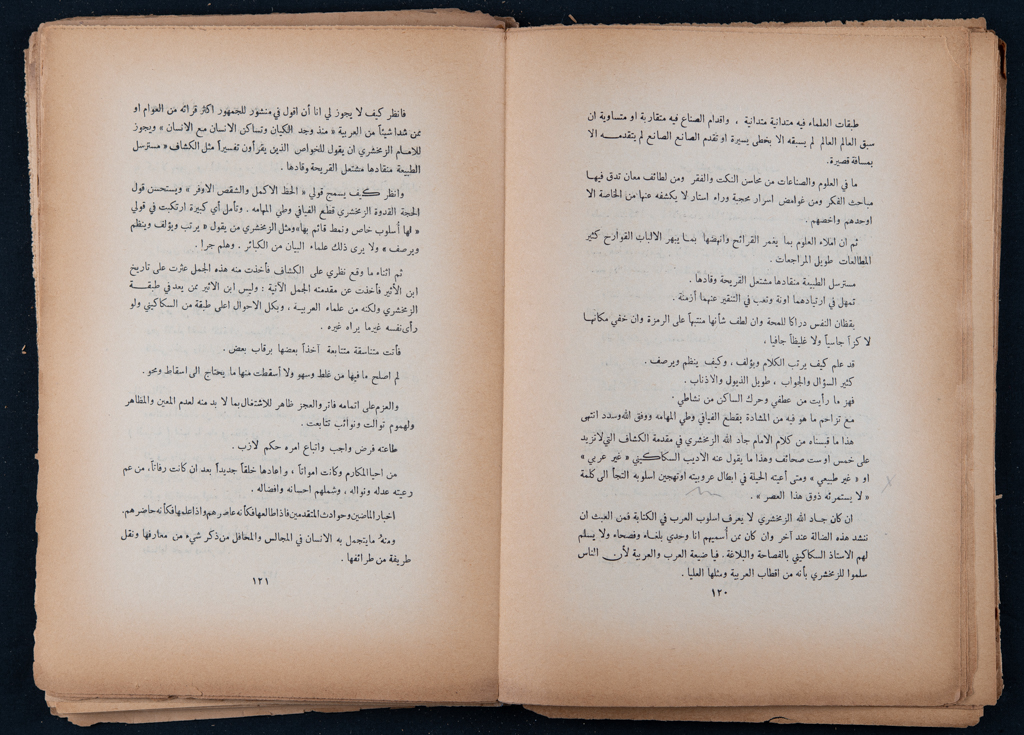 طبقات العلماء فيه متدانية متدانية ، واقدام الصناع فيه متقاربة او متساوية ان
سبق العالم العالم لم يسبقه الا بخطى يسيرة او تقدم الصانع الصانع لم يتقدمه الا
بمسافة قصيرة.
ما في العلوم والصناعات من محاسن النكت والفقر ومن لطائف معان تدق فيها
مباحث الفكر ومن غوامض اسرار محجبة وراء استار لا يكشفه عنها من الخاصة الا
اوحدهم واخصهم .
ثم ان املاء العلوم بما يغمر القرائح وانهضها بما يبهر الالباب القوارح كثير
المطالعات طويل المراجعات .
مسترسل الطبيعة منقادها مشتعل القريحة وقادها .
تمهل في ارتيادهما اونة وتعب في التنقير عنهما أزمنة .
يقظان النفس دراكا للمحة وان لطف شأنها منتبهاً على الرمزة وان خفي مكانها
لا كزاً جاسياً ولا غليظاً جافيا .
قد علم كيف يرتب الكلام ويؤلف ، وكيف ينظم ويرصف .
كثير السؤال والجواب ، طويل الذيول والاذناب .
فهز ما رأيت من عطفي وحرك الساكن من نشاطي .
مع تزاحم ما هو فيه من المشادة بقطع الفيافي وطي المهامه ووفق الله وسدد انتهى
هذا ما قبسناه من كلام الامام جاد الله الزمخشري في مقدمة الكشاف التي لا تزيد
على خمس او ست صحائف وهذا ما يقول عنه الاديب السكاكيني « غير عربي »
او « غير طبيعي » ومتى أعيته الحيلة في ابطال عروبيته او تهجين اسلوبه التجأ الى كلمة
« لا يستمرئه ذوق هذا العصر » .
ان كان جاد الله الزمخشري لا يعرف اسلوب العرب في الكتابة فمن العبث ان
ننشد هذه الضالة عند آخر وان كان ممن أسميهم انا وحدي بلغاء وفصحاء ولا يسلم
لهم الاستاذ السكاكيني بالفصاحة والبلاغة . فيا ضيعة العرب والعربية لأن الناس
سلموا للزمخشري بأنه من اقطاب العربية ومثلها العليا .
١٢٠
فانظر كيف لا يجوز لي انا أن اقول في منشور للجمهور اكثر قرائه من العوام او
ممن شدا شيئاً من العربية « منذ وجد الكيان وتساكن الانسان مع الانسان » ويجوز
للامام الزمخشري ان يقول للخواص الذين يقرأون تفسيراً مثل الكشاف « مسترسل
الطبيعة منقادها مشتعل القريحة وقادها .
وانظر كيف يسمج قولي « الحظ الاكمل والشقص الاوفر » ويستحسن قول
الحجة القدوة الزمخشري قطع الفيافي وطي المهامه . وتأمل أي كبيرة ارتكبت في قولي
« لها أسلوب خاص ونمط قائم بها » ومثل الزمخشري من يقول « يرتب ويؤلف وينظم
ويرصف » ولا يرى ذلك علماء البيان من الكبائر . وهلم جرا .
ثم اثناء ما وقع نظري على الكشاف فأخذت منه هذه الجمل عثرت على تاريخ
ابن الأثير فأخذت عن مقدمته الجمل الآتية : وليس ابن الاثير ممن يعد في طبقة
الزمخشري ولكنه من علماء العربية ، وبكل الاحوال اعلى طبقة من السكاكيني ولو
رأى نفسه غير ما يراه غيره .
فأتت متناسقة متتابعة آخذاً بعضها برقاب بعض .
لم اصلح ما فيها من غلط وسهو ولا أسقطت منها ما يحتاج الى اسقاط ومحو .
والعزم على اتمامه فاتر والعجز ظاهر للاشتغال بما لا بد منه لعدم المعين والمظاهر
ولهموم توالت ونوائب تتابعت .
طاعته فرض واجب واتباع امره حكم لازب .
من احيا المكارم وكانت امواتاً ، واعادها خلقاً جديداً بعد ان كانت رفاتاً، من عم
رعيته عدله ونواله ، وشملهم احسانه وافضاله .
اخبار الماضين وحوادث المتقدمين فاذا طالعها فكأنه عاصرهم واذا علمها فكأنه حاضرهم.
ومنه ما يتجمل به الانسان في المجالس والمحافل من ذكر شيء من معارفها ونقل
طريفة من طرائفها .
١٢١